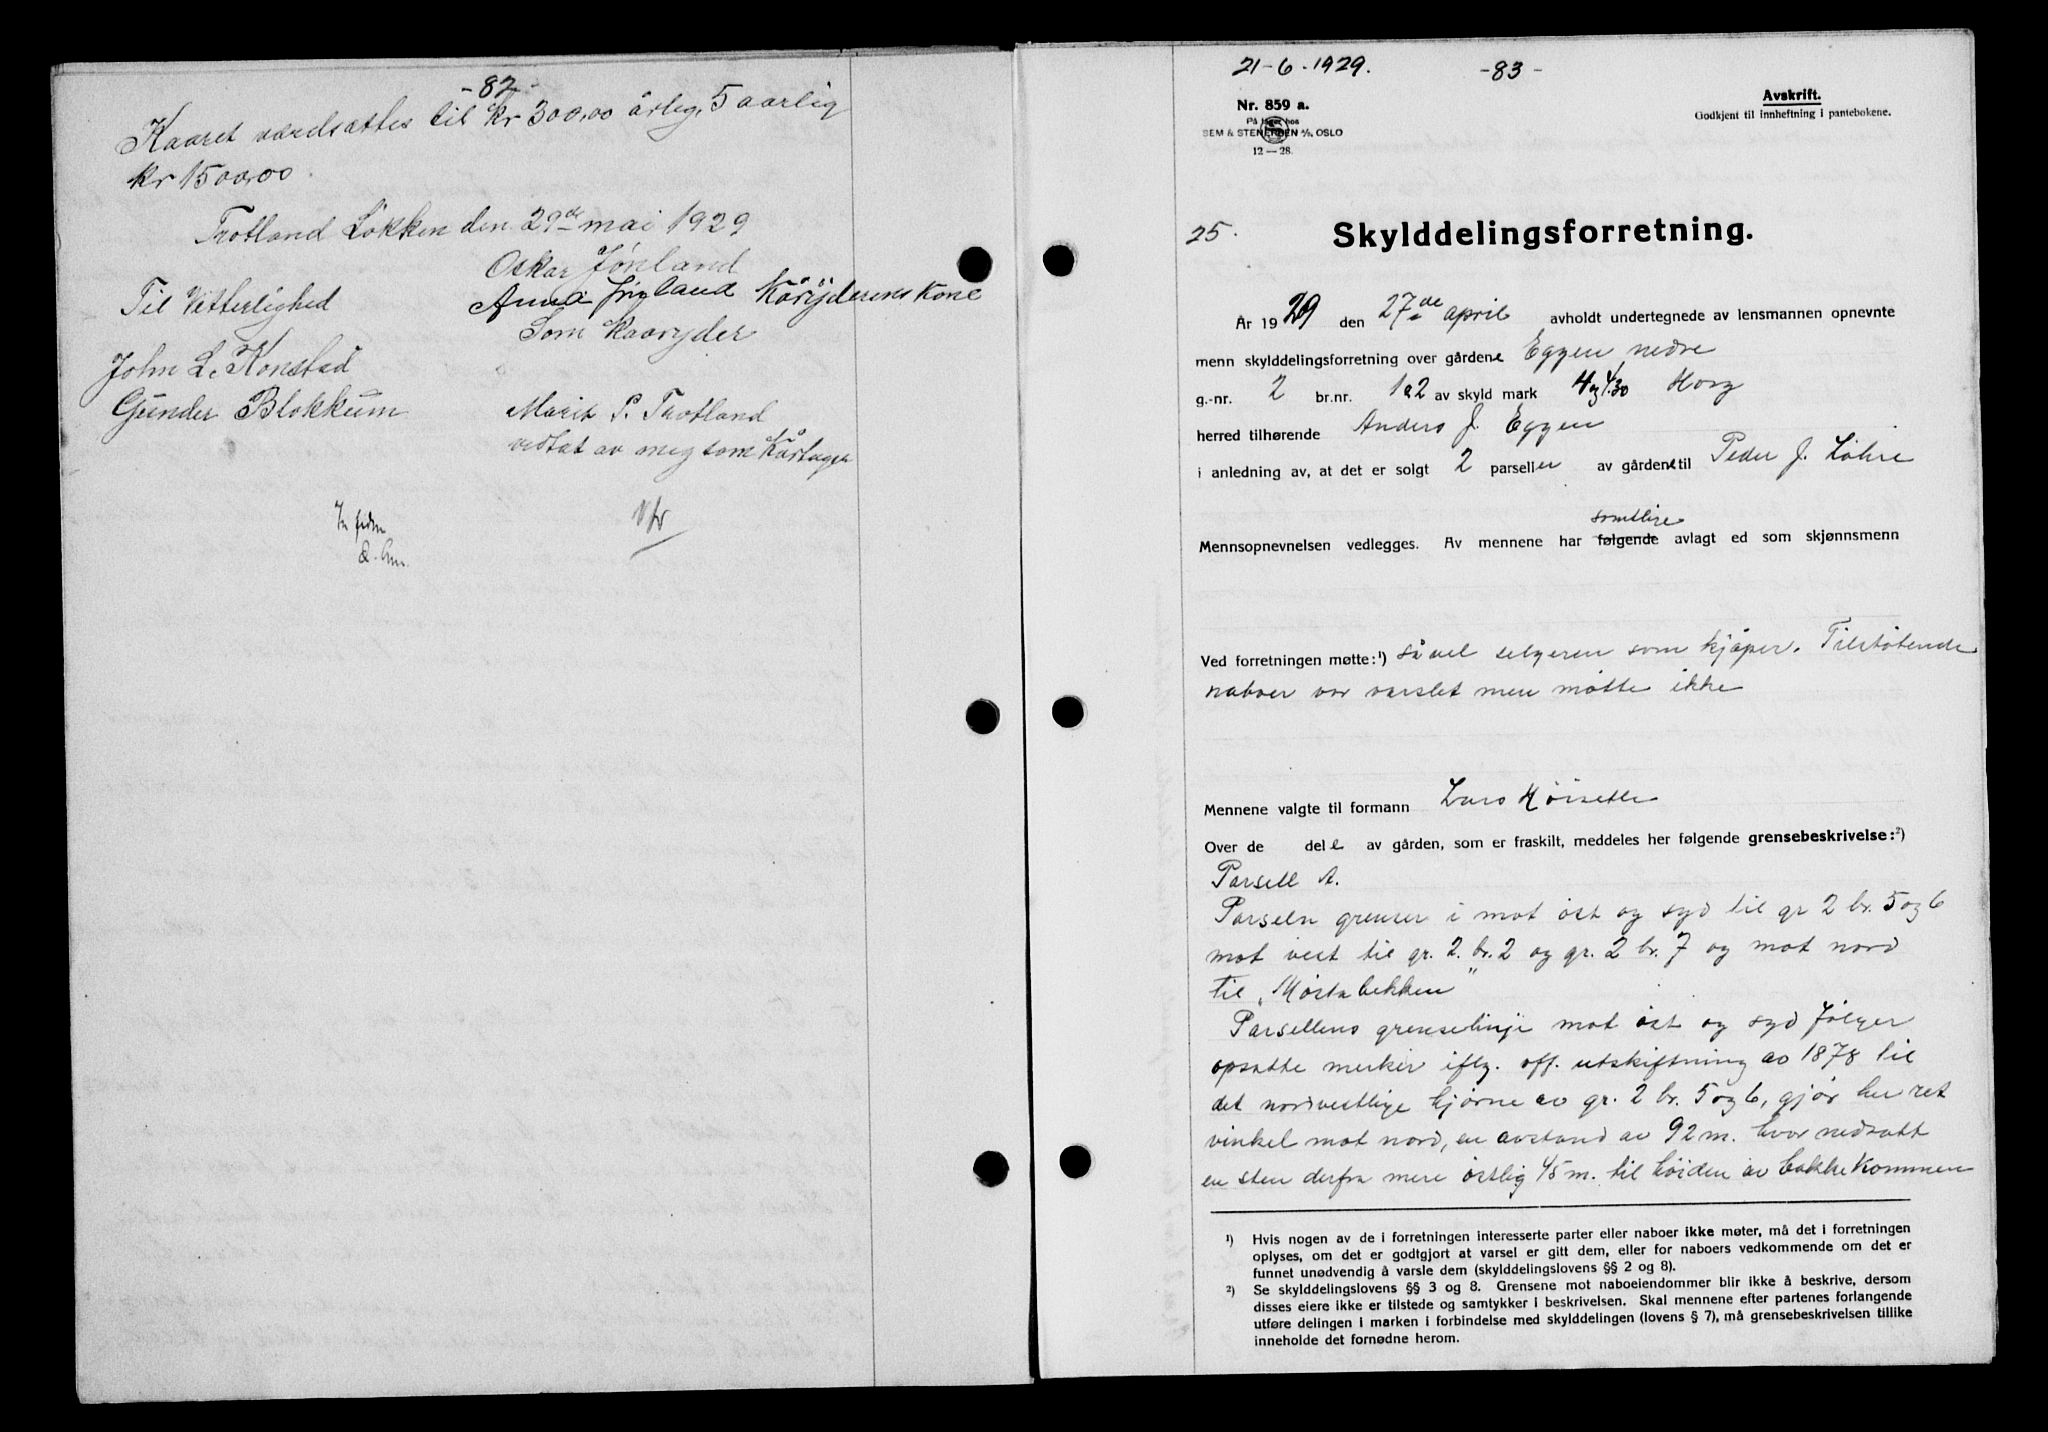 -82-
Kaaret værdsattes til kr 300,00 årleg, 5 aarlig
kr 1500,00.
Trotland Løkken den 29de mai 1929
Oskar Jörland
Til Vitterlighed
Anna Jörland Kårÿderens Kone
Som Kaaryder
John L. Konstad
Gunder Blokkum
Marit P. Trotland
vedtat av meg som Kårtager
21-6-1929.
-83-
Nr. 859 a.
På lager hos
SEM & STENERSEN A/S, OSLO
12—28.
Avskrift.
Godkjent til innheftning i pantebøkene.
25.
Skylddelingsforretning.
År 1929 den 27de april avholdt undertegnede av lensmannen opnevnte
menn skylddelingsforretning over gårdene Eggen nedre
g.-nr. 2 br.nr. 1 & 2 av skyld mark 4 og 4.30 Horg
herred tilhørende Anders J. Eggen
i anledning av, at det er solgt 2 parseller av gårdene til Peder J. Løhre
samtlige
Mennsopnevnelsen vedlegges. Av mennene har følgende avlagt ed som skjønnsmenn
Ved forretningen møtte:¹) såvel selgeren som kjøper. Tilstøtende
naboer var varslet men møtte ikke
Mennene valgte til formann Lars Kørsetle
Over de dele av gården, som er fraskilt, meddeles her følgende grensebeskrivelse:²)
Parsell A.
Parseln grenser i mot øst og syd til gr 2 br. 5 og 6
mot vest til gr. 2. br. 2 og gr. 2 br. 7 og mot nord
til „Mørtabekken"
Parsellens grenselinje mot øst og syd følger
opsatte merker iflg. off. utskiftning av 1878 til
det nordvestlige hjørne av gr. 2 br. 5 og 6, gjør her ret
vinkel mot nord, en avstand av 92 m. hvor nedsatt
en sten derfra mere østlig 45 m. til høiden av bakkekammen
¹) Hvis nogen av de i forretningen interesserte parter eller naboer ikke møter, må det i forretningen
oplyses, om det er godtgjort at varsel er gitt dem, eller for naboers vedkommende om det er
funnet unødvendig å varsle dem (skylddelingslovens §§ 2 og 8).
²) Se skylddelingslovens §§ 3 og 8. Grensene mot naboeiendommer blir ikke å beskrive, dersom
disses eiere ikke er tilstede og samtykker i beskrivelsen. Skal mennene efter partenes forlangende
utføre delingen i marken i forbindelse med skylddelingen (lovens § 7), må grensebeskrivelsen tillike
inneholde det fornødne herom.